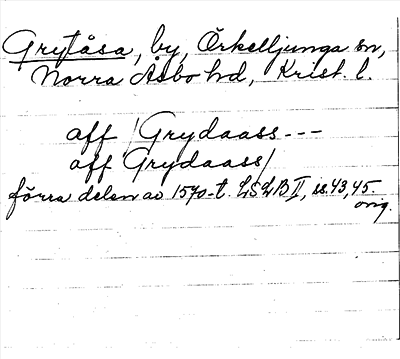 Grytåsa, by, Örkelljunga sn,
Norra Åsbo hd, Krist. l.
aff /Grydaass---
aff Grydaass/
förra delen av 1570-t. LSLB II, ss. 43, 45.
orig.